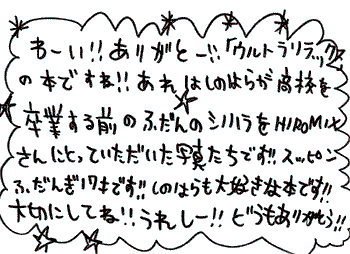 わーい!! ありがとー!!「ウルトラリラックス」
の本ですね!! あれはしのはらが高校を
卒業する前のふだんのシノハラをHIROMIX
さんにとっていただいた写真たちです!! スッピン
ふだんぎ17才です!! しのはらも大好きな本です!!
大切にしてね!! うれしー!! どうもありがとう!!